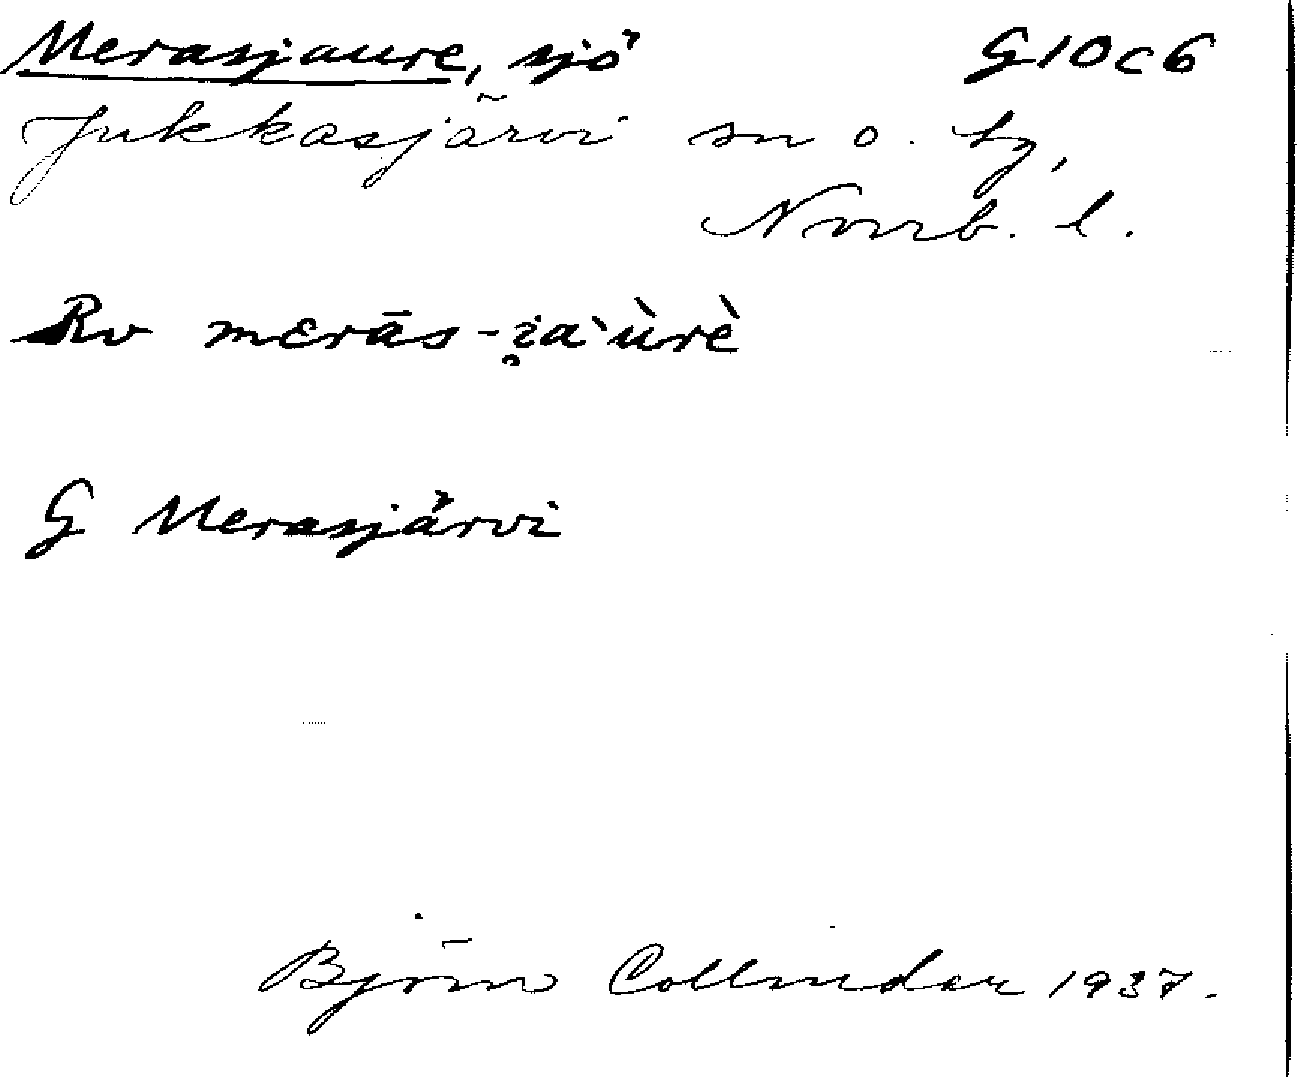 Merasjaure, sjö G10c6
Jukkasjärvi sn o. tg,
Norrb. l.
Rv merās-i̥a`ùrè
G Merasjärvi
Björn Collinder 1937.